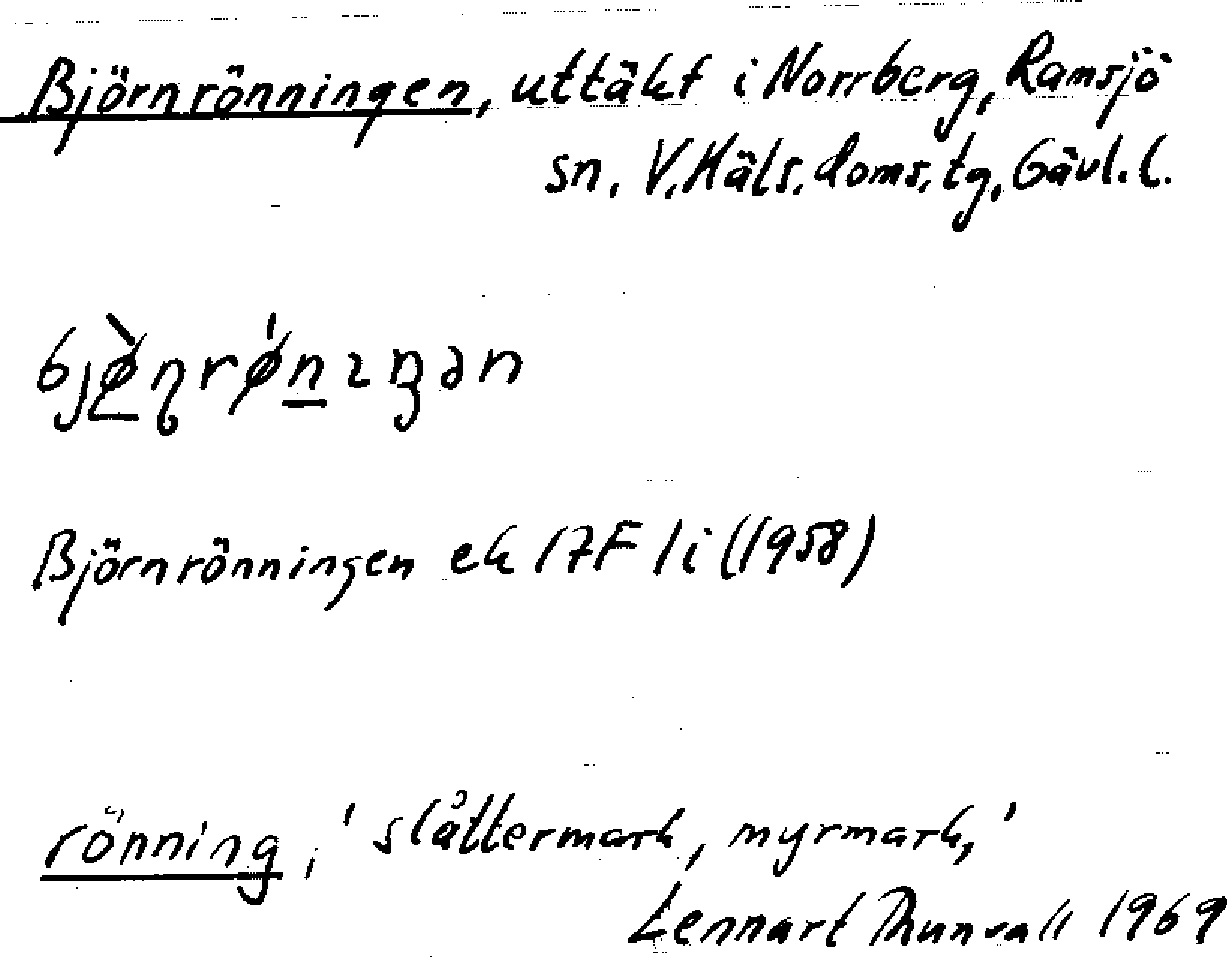 Björnrönningen, uttäkt i Norrberg, Ramsjö
sn, V. Häls. doms. tg, Gävl. l.
bjø̀ɳrǿnıŋən
Björnrönningen ek 17F 1i (1958)
rönning, 'slåttermark, myrmark,'
Lennart Thunvall 1969